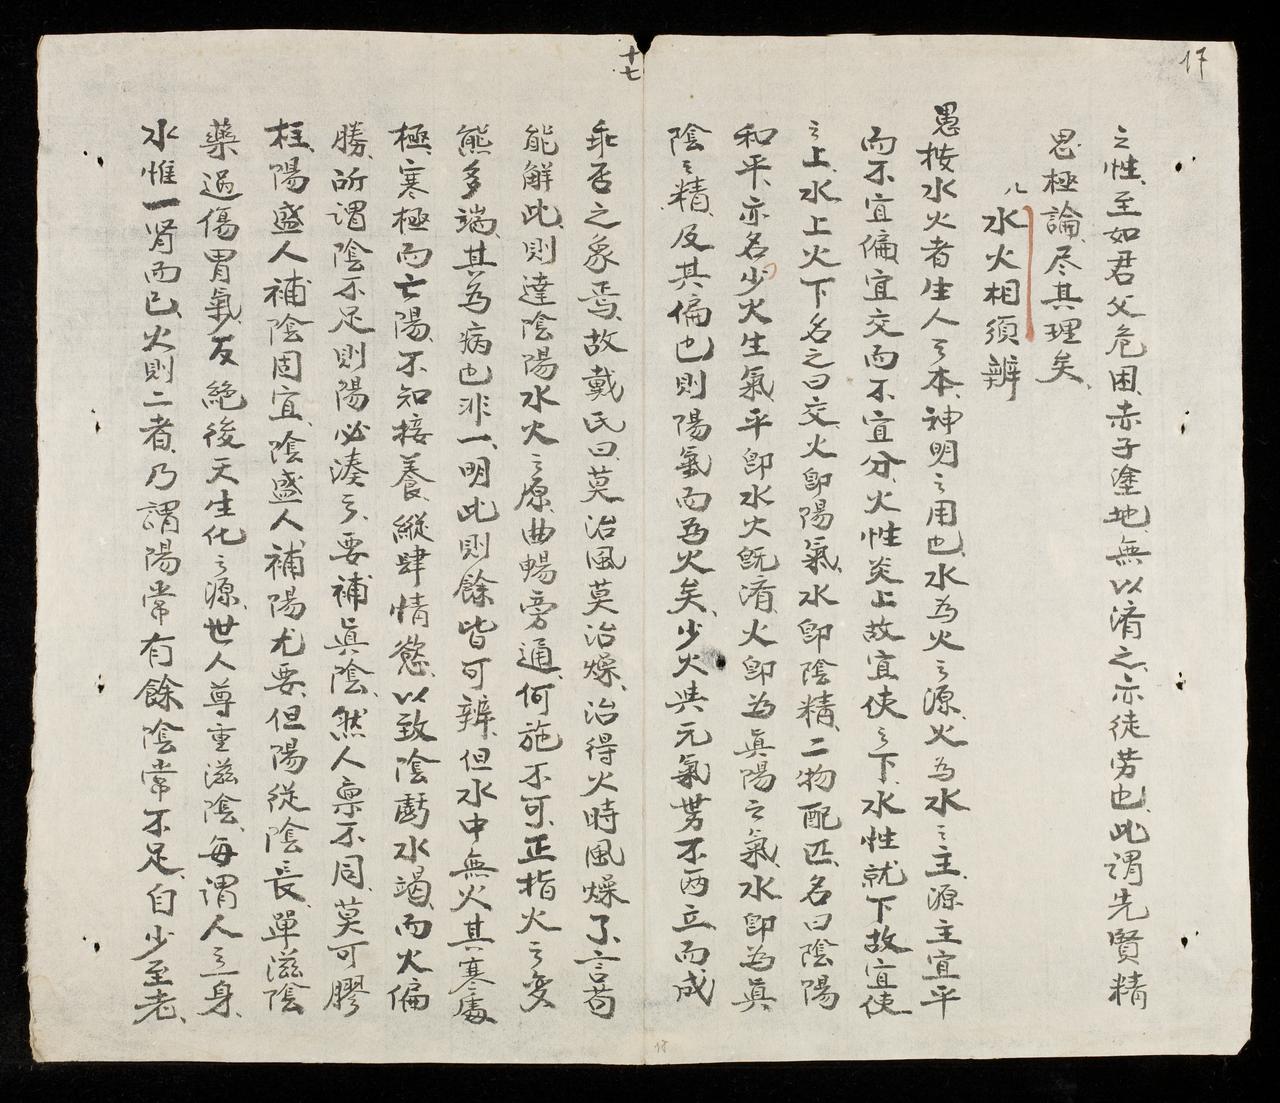 17
十七
之性、至如君父危困、赤子塗地、無以済之、亦徒労也、此謂先賢精
思極論、尽其理矣、
八水火相須辨
愚按水火者生人之本、神明之用也、水為火之源、火為水之主、源主宜平
而不宜偏、宜交而不宜分、火性炎上故宜使之下、水性就下故宜使
之上、水上火下名之曰交、火即陽氣、水即陰精、二物配匹、名曰陰陽
和平、亦名少火生氣平、即水火既済、火即為眞陽之氣、水即為眞
陰之精、及其偏也、則陽氣而為火矣、少火與元氣勢不两立、而成
乖否之象焉、故戴氏曰、莫治風莫治燥、治得火時風燥了、言苟
能解此、則達陰陽水火之原、曲暢旁通、何施不可、正指火之変
態多端、其為病也非一、明此則餘皆可辨、但水中無火其寒處
極、寒極而亡陽、不知接養、縱肆情慾、以致陰虧水竭、而火偏
勝、所謂陰不足則陽必湊之、要補眞陰、然人禀不同、莫可膠
柱、陽盛人補陰固宜、陰盛人補陽尤要、但陽從陰長、單滋陰
藥過傷胃氣、反絶後天生化之源、世人尊重滋陰、每謂人之一身、
水惟一肾而已、火則二者、乃謂陽常有餘陰常不足、自少至老、
18